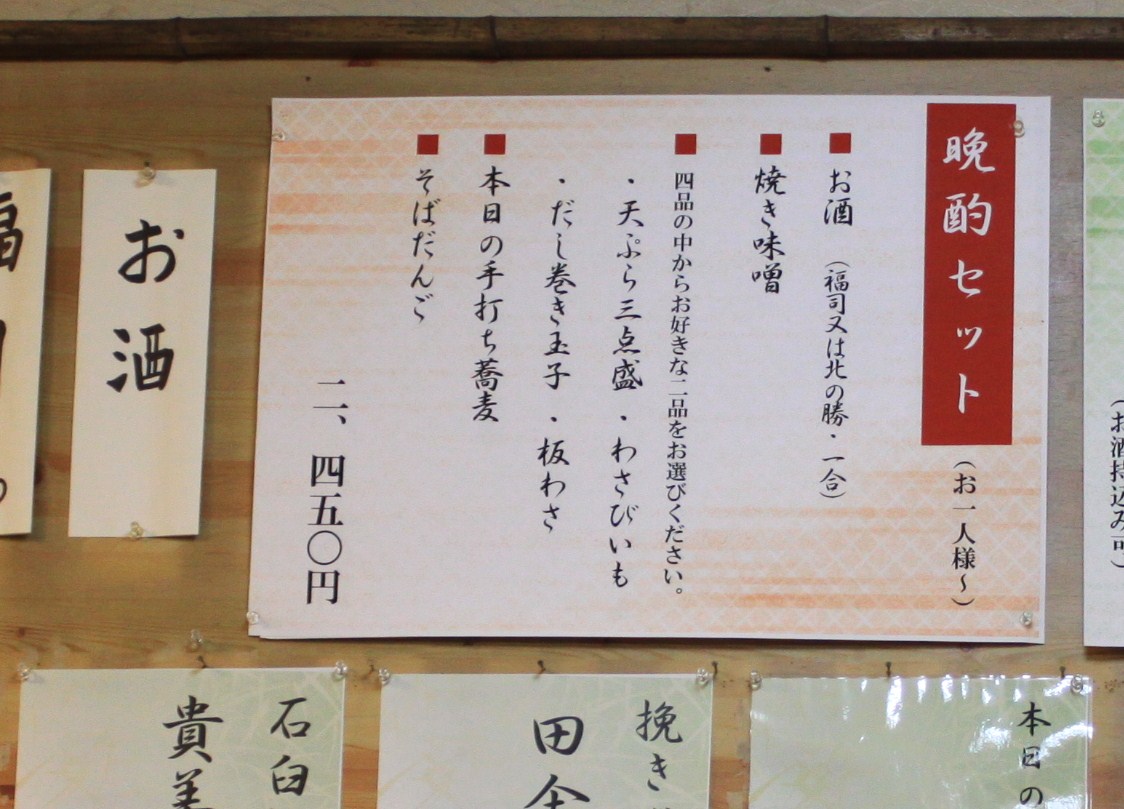 （お酒持込み可）
晩酌セット（お一人様～）
お酒（福司又は北の勝・一合）
焼き味噌
四品の中からお好きな二品をお選びください。
・天ぷら三点盛・わさびいも
・だし巻き玉子・板わさ
本日の手打ち蕎麦
そばだんご
二、四五〇円
お酒
本日の
挽き
田舎
石臼
貴美